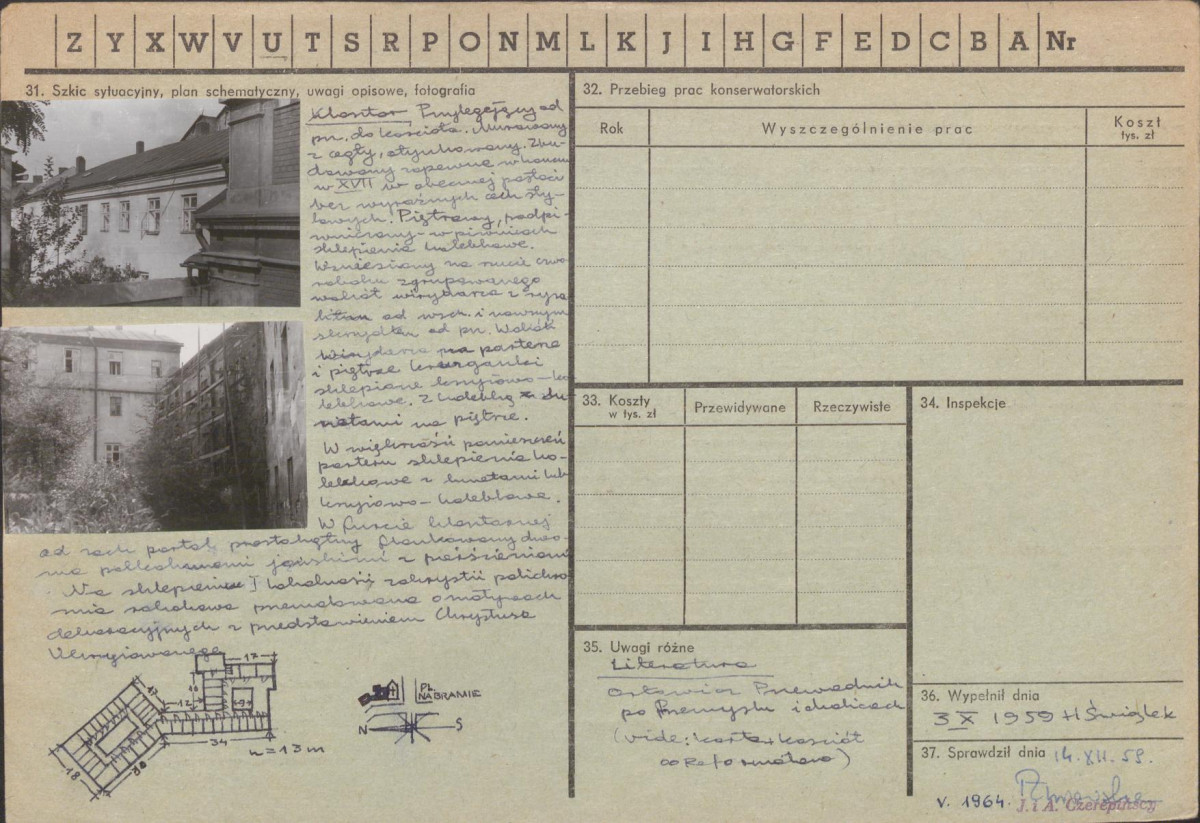 Z Y X W V U T S R P O N M L K J I H G F E D C B A Nr
31. Szkic sytuacyjny, plan schematyczny, uwagi opisowe, fotografia
Klasztor Przylegający od
pn. do kościoła. Murowany
z cegły, otynkowany. Zbu-
dowany zapewne w końcu
w XVII w obecnej postaci
bez wyraźnych cech sty-
lowych. Piętrowy, podpi-
wniczony - w piwnicach
sklepienia kolebkowe.
Wzniesiony na rzucie czwo-
roboku zgrupowanego
wokół wirydarza z ryza
litem od wsch. i nowszym
skrzydłem od pn. Wokół
Wirydarza na parterze
i piętrze krużganki
sklepione krzyżowo-ko
lebkowe. z kolebką z lu
netami na piętrze.
W większości pomieszczeń
parteru sklepienia ko-
lebkowe z lunetami lub
krzyżowo-kolebkowe.
W furcie klasztornej
od zach portal prostokątny flankowany dwo-
ma półkolumnami jońskimi z pierścieniami
Na sklepieniu I kondygnacji zakrystii polichro
mia rokokowa przemalowana o motywach
dekoracyjnych z przedstawieniem Chrystusa
Ukrzyżowanego
17
12
9
17
34
18
30
h = 13 m
PL.
NA BRAMIE
N
S
32. Przebieg prac konserwatorskich
Rok
Wyszczególnienie prac
Koszt
tys. zł
33. Koszty
w tys. zł
Przewidywane
Rzeczywiste
34. Inspekcje
35. Uwagi różne
Literatura
Orłowicz Przewodnik
po Przemyślu i okolicach
(vide: karta kościół
oo Reformatów)
36. Wypełnił dnia
3 X 1959 H Świątek
37. Sprawdził dnia 14. XII. 59.
V. 1964. J. i A. Czerepińscy